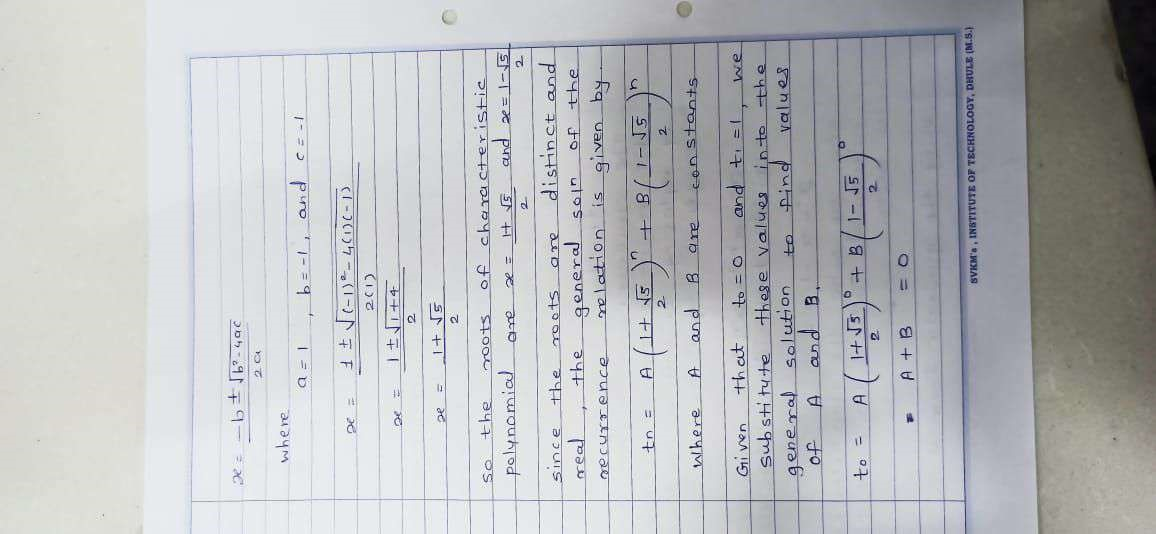 x = -b ± √b² - 4ac / 2a
where
a = 1 , b = -1 , and c = -1
x = 1 ± √(-1)² - 4(1)(-1) / 2(1)
x = 1 ± √1+4 / 2
x = 1 + √5 / 2
so the roots of characteristic
polynomial are x = 1+√5 / 2 and x = 1-√5 / 2
since the roots are distinct and
real, the general soln of the
recurrence relation is given by.
tn = A (1+√5 / 2)ⁿ + B (1-√5 / 2)ⁿ
where A and B are constants
Given that t0 = 0 and t1 = 1 , we
substitute these values into the
general solution to find values
of A and B.
t0 = A (1+√5 / 2)⁰ + B (1-√5 / 2)⁰
= A + B = 0
SVKM's , INSTITUTE OF TECHNOLOGY, DHULE (M.S.)